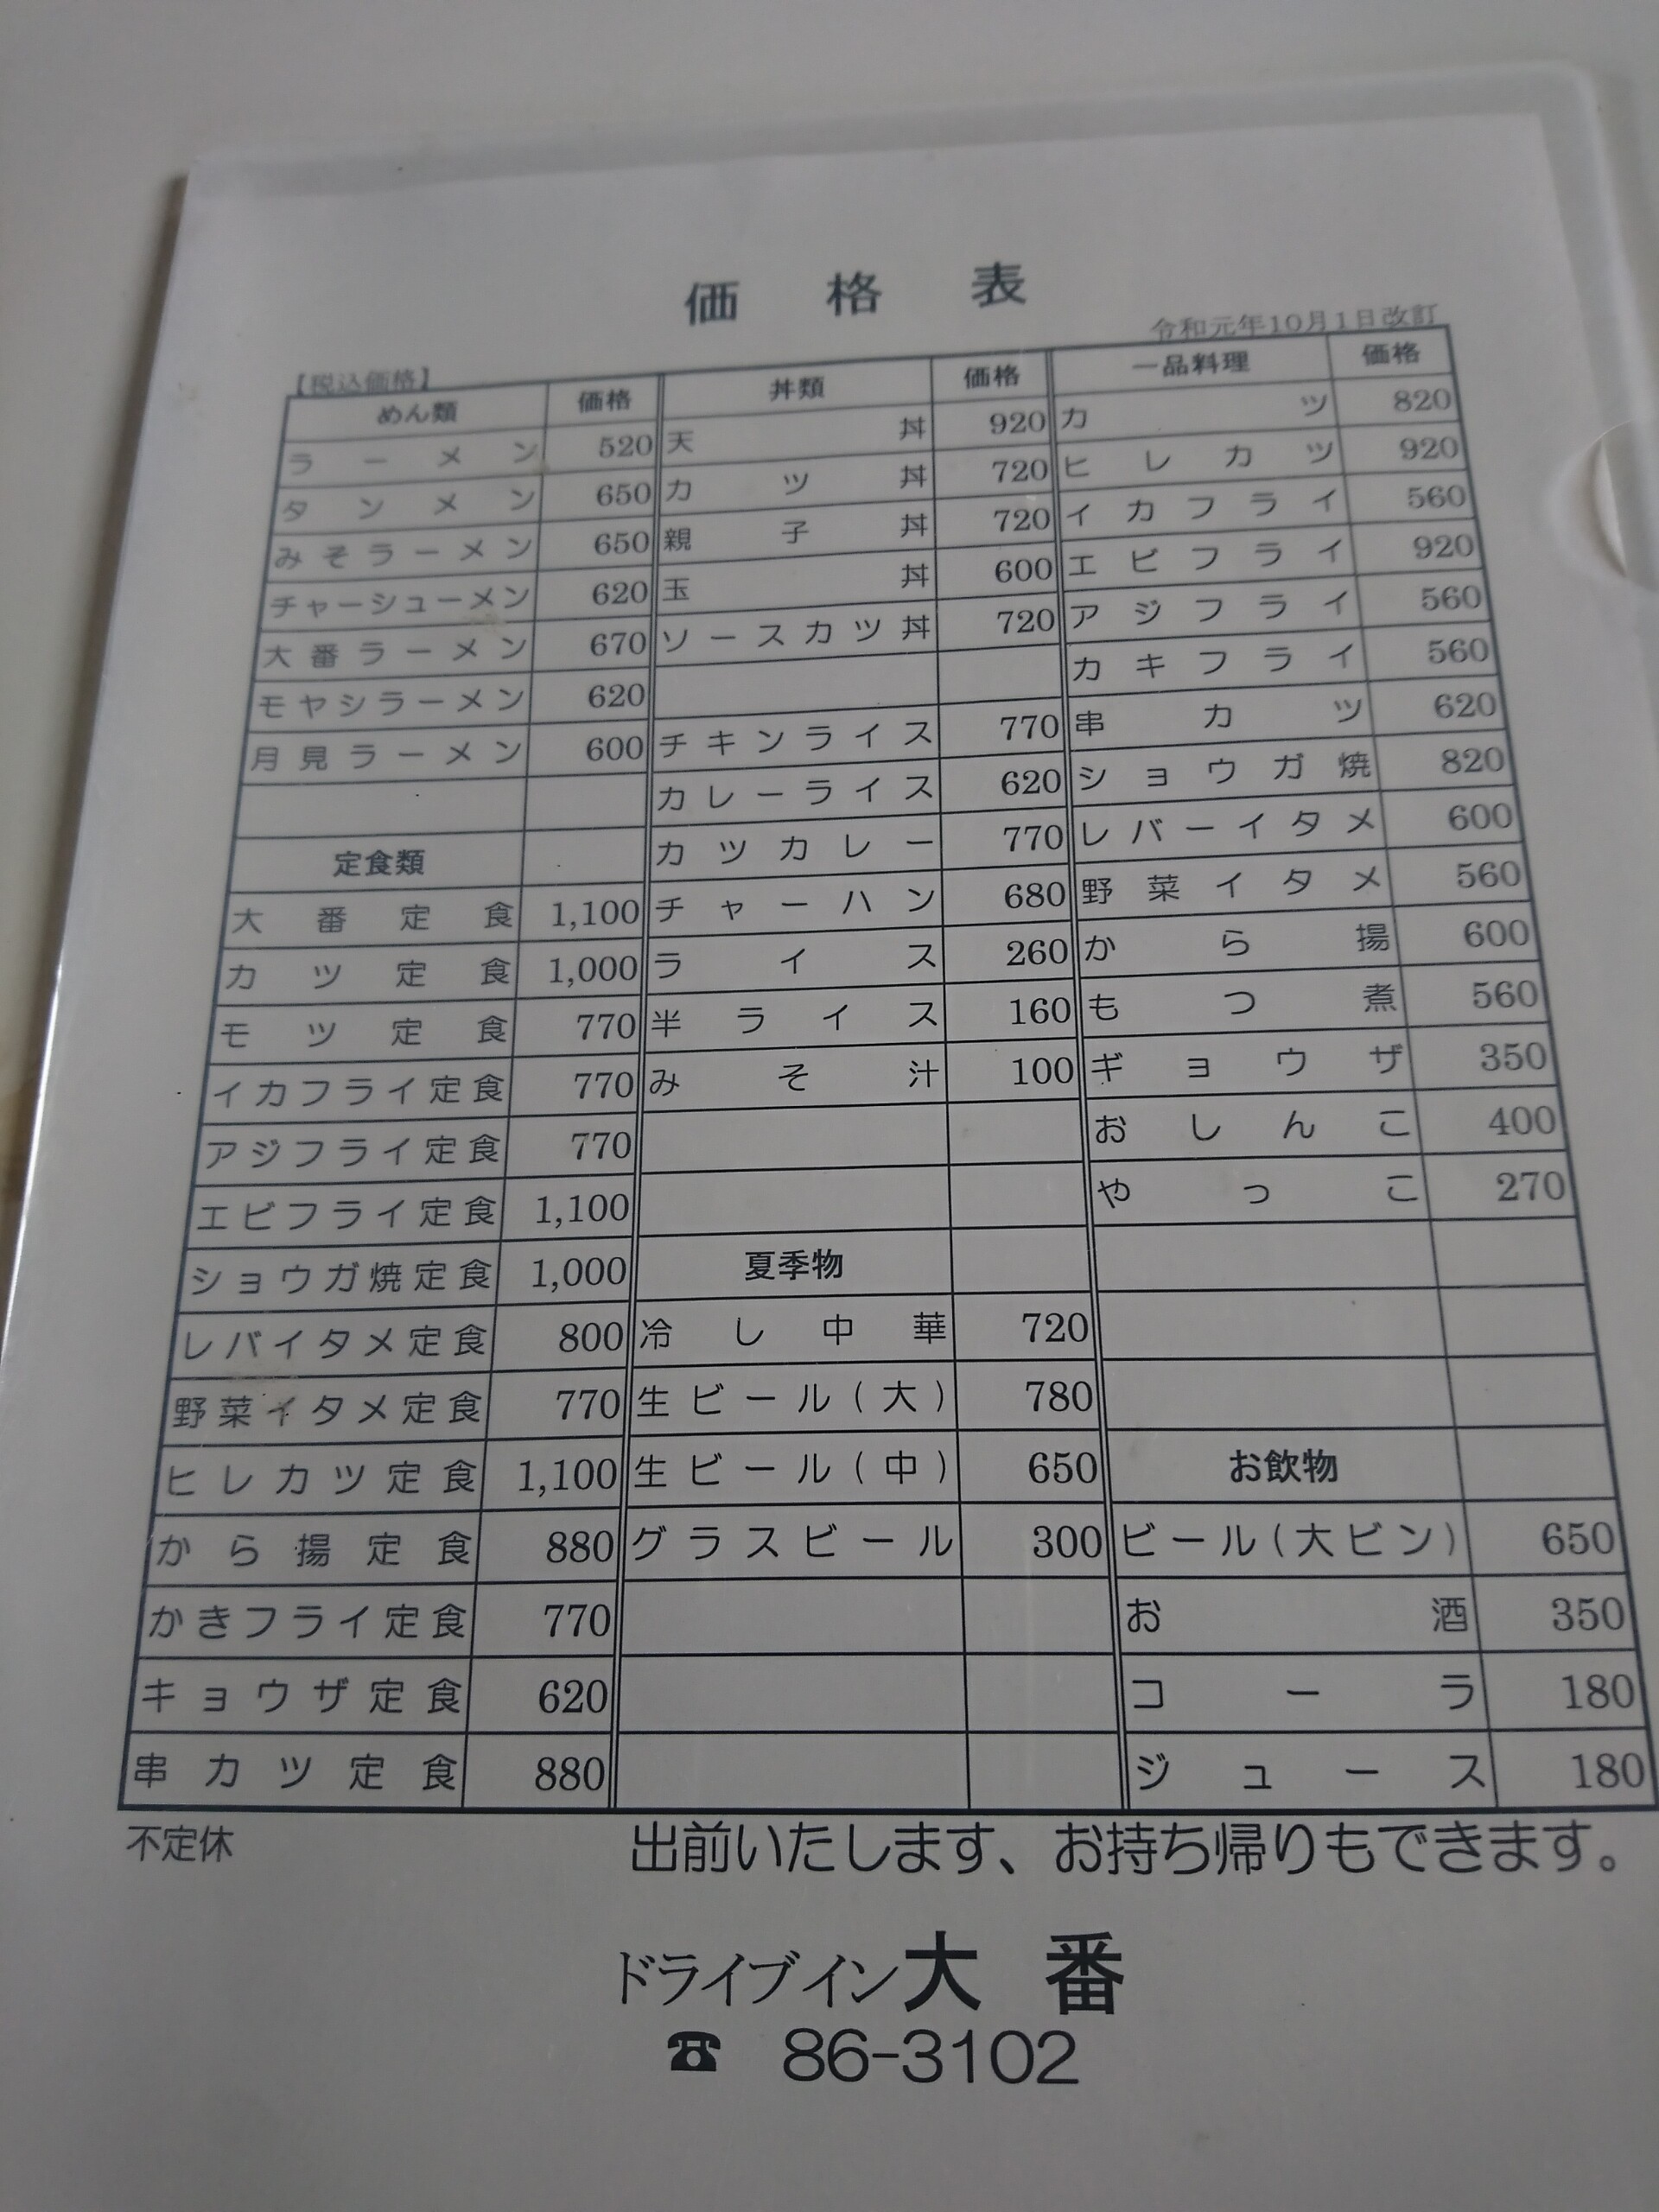 価格表
令和元年10月1日改訂
【税込価格】
めん類 価格
ラーメン 520
タンメン 650
みそラーメン 650
チャーシューメン 620
大番ラーメン 670
モヤシラーメン 620
月見ラーメン 600
定食類
大番定食 1,100
カツ定食 1,000
モツ定食 770
イカフライ定食 770
アジフライ定食 770
エビフライ定食 1,100
ショウガ焼定食 1,000
レバイタメ定食 800
野菜イタメ定食 770
ヒレカツ定食 1,100
から揚定食 880
かきフライ定食 770
キョウザ定食 620
串カツ定食 880
丼類 価格
天丼 920
カツ丼 720
親子丼 720
玉丼 600
ソースカツ丼 720
チキンライス 770
カレーライス 620
カツカレー 770
チャーハン 680
ライス 260
半ライス 160
みそ汁 100
夏季物
冷し中華 720
生ビール(大) 780
生ビール(中) 650
グラスビール 300
一品料理 価格
カツ 820
ヒレカツ 920
イカフライ 560
エビフライ 920
アジフライ 560
カキフライ 560
串カツ 620
ショウガ焼 820
レバーイタメ 600
野菜イタメ 560
から揚 600
もつ煮 560
ギョウザ 350
おしんこ 400
やっこ 270
お飲物
ビール(大ビン) 650
お酒 350
コーラ 180
ジュース 180
不定休
出前いたします、お持ち帰りもできます。
ドライブイン大番
☎ 86-3102